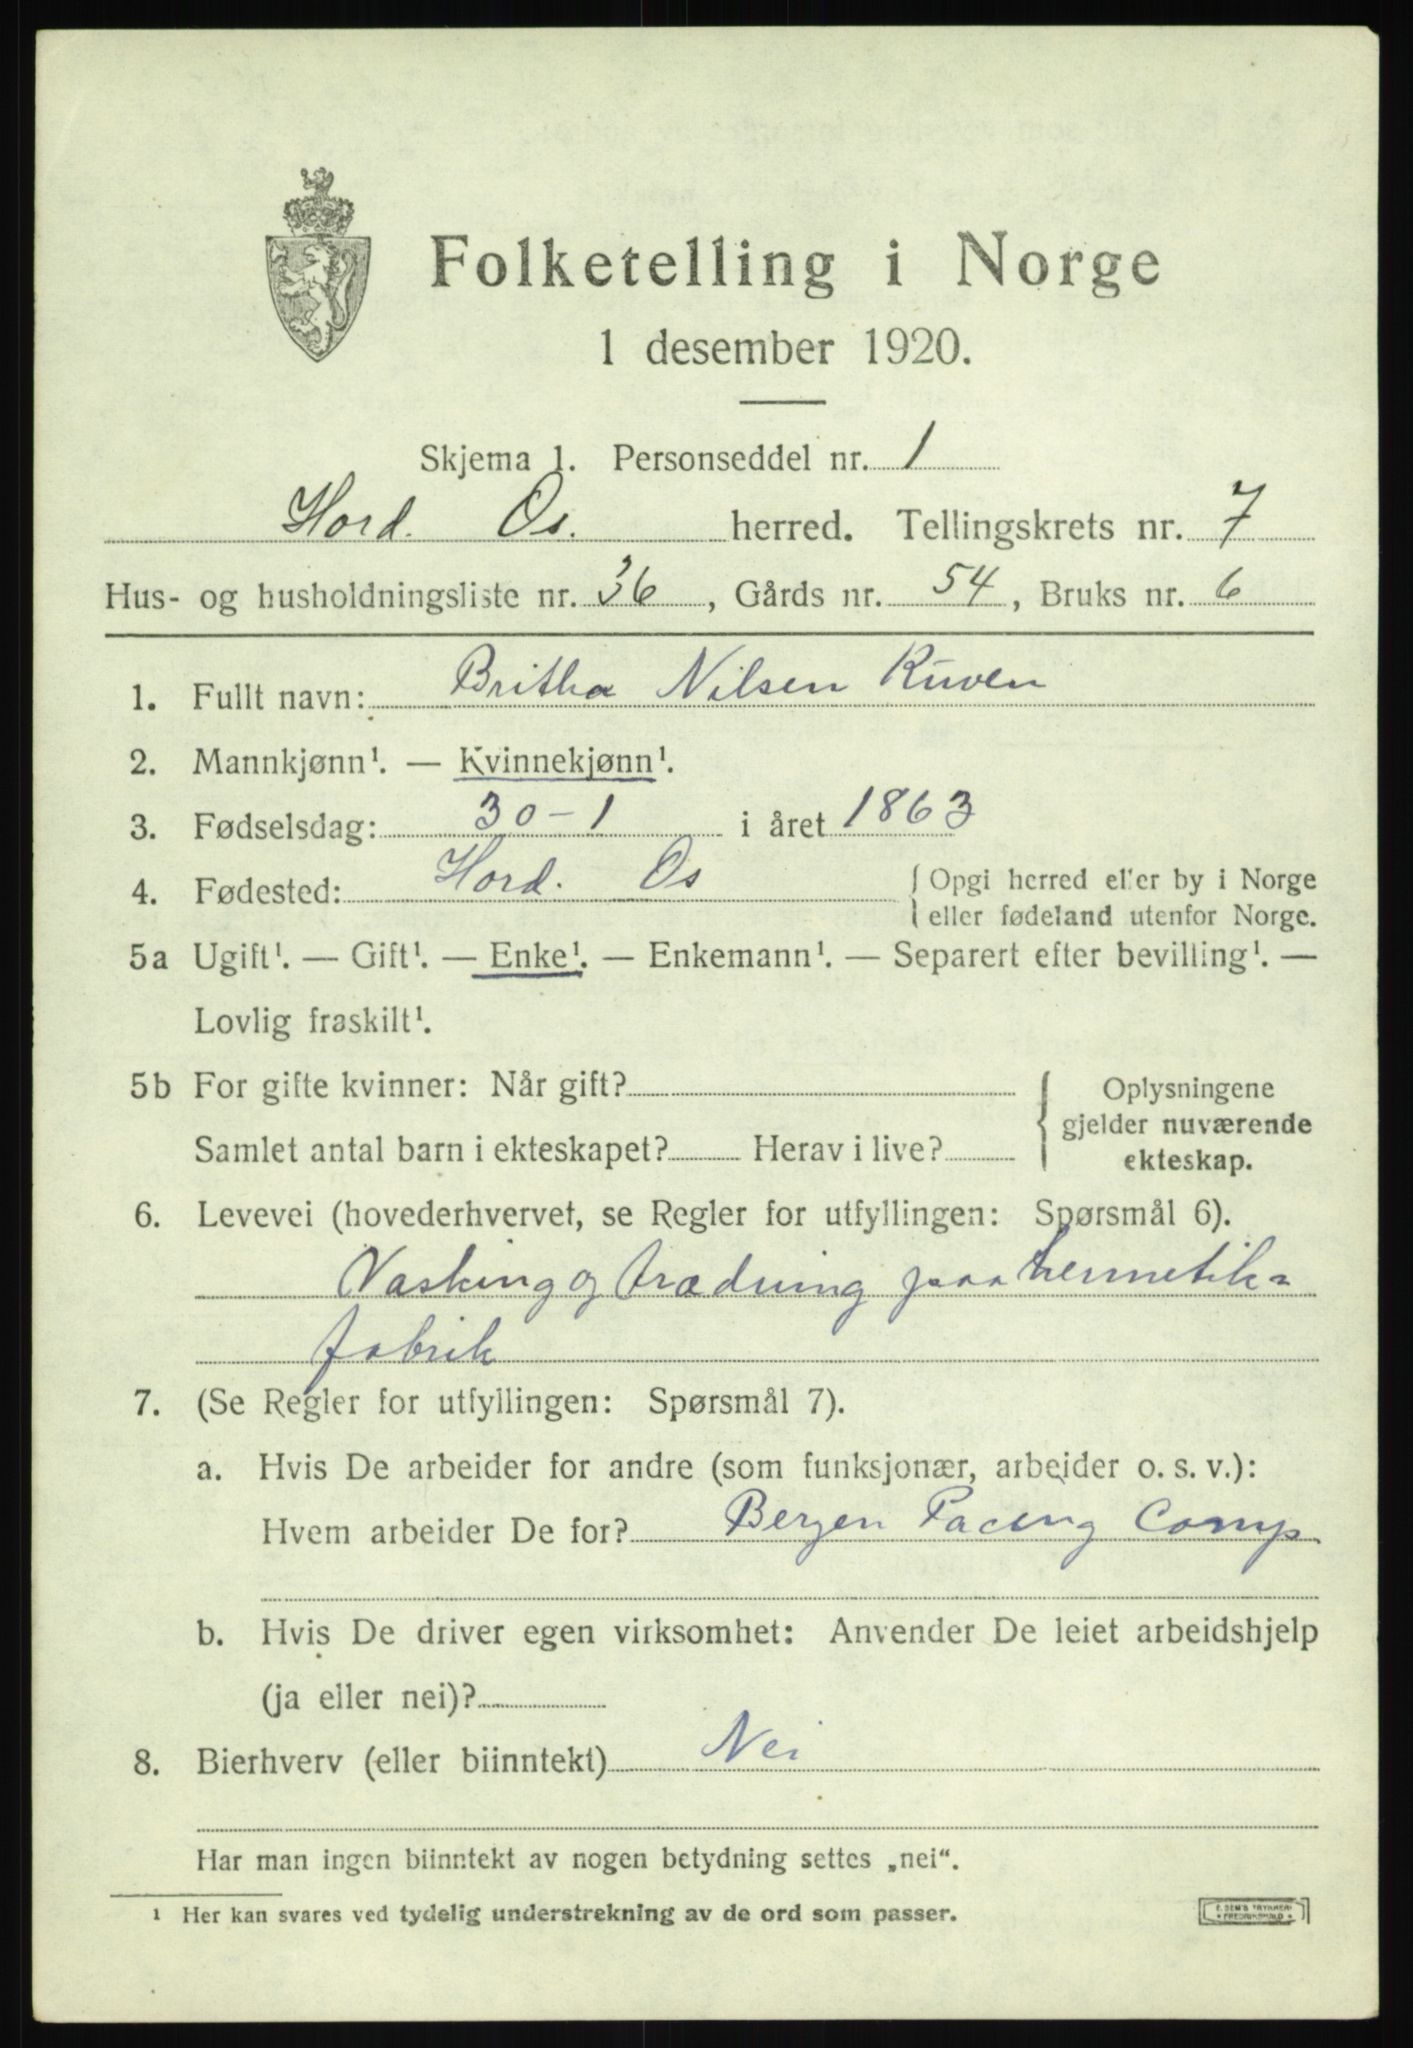 Folketelling i Norge
1 desember 1920.
Skjema 1. Personseddel nr. 1
Hord. Os. herred. Tellingskrets nr. 7
Hus- og husholdningsliste nr. 36, Gårds nr. 54, Bruks nr. 6
1. Fullt navn: Britha Nilsen Kuven
2. Mannkjønn¹. — Kvinnekjønn¹.
3. Fødselsdag: 30-1 i året 1863
4. Fødested: Hord. Os { Opgi herred eller by i Norge
eller fødeland utenfor Norge.
5a Ugift¹. — Gift¹. — Enke¹. — Enkemann¹. — Separert efter bevilling¹. —
Lovlig fraskilt¹.
5b For gifte kvinner: Når gift?
Samlet antal barn i ekteskapet? Herav i live?
Oplysningene
gjelder nuværende
ekteskap.
6. Levevei (hovederhvervet, se Regler for utfyllingen: Spørsmål 6).
Vasking og trædning paa hermetik=
fabrik
7. (Se Regler for utfyllingen: Spørsmål 7).
a. Hvis De arbeider for andre (som funksjonær, arbeider o. s. v.):
Hvem arbeider De for? Bergen Pacing Comp
b. Hvis De driver egen virksomhet: Anvender De leiet arbeidshjelp
(ja eller nei)?
8. Bierhverv (eller biinntekt) Nei
Har man ingen biinntekt av nogen betydning settes „nei“.
¹ Her kan svares ved tydelig understrekning av de ord som passer.
E. SEM'S TRYKKERI
FREDRIKSHALD